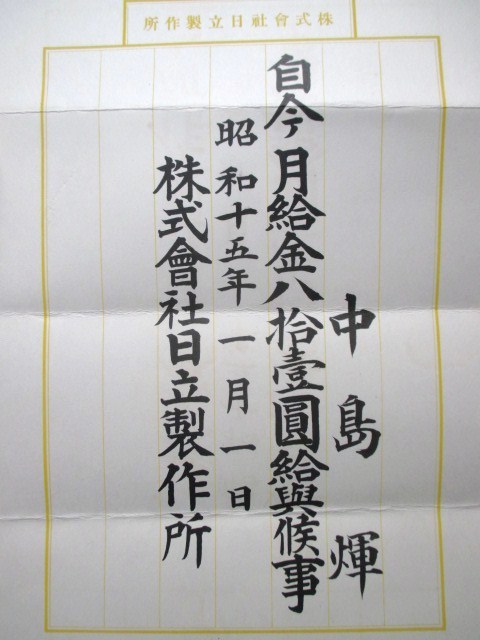 株式會社日立製作所
中島輝
自今月給金八拾壹圓給與候事
昭和十五年一月一日
株式會社日立製作所